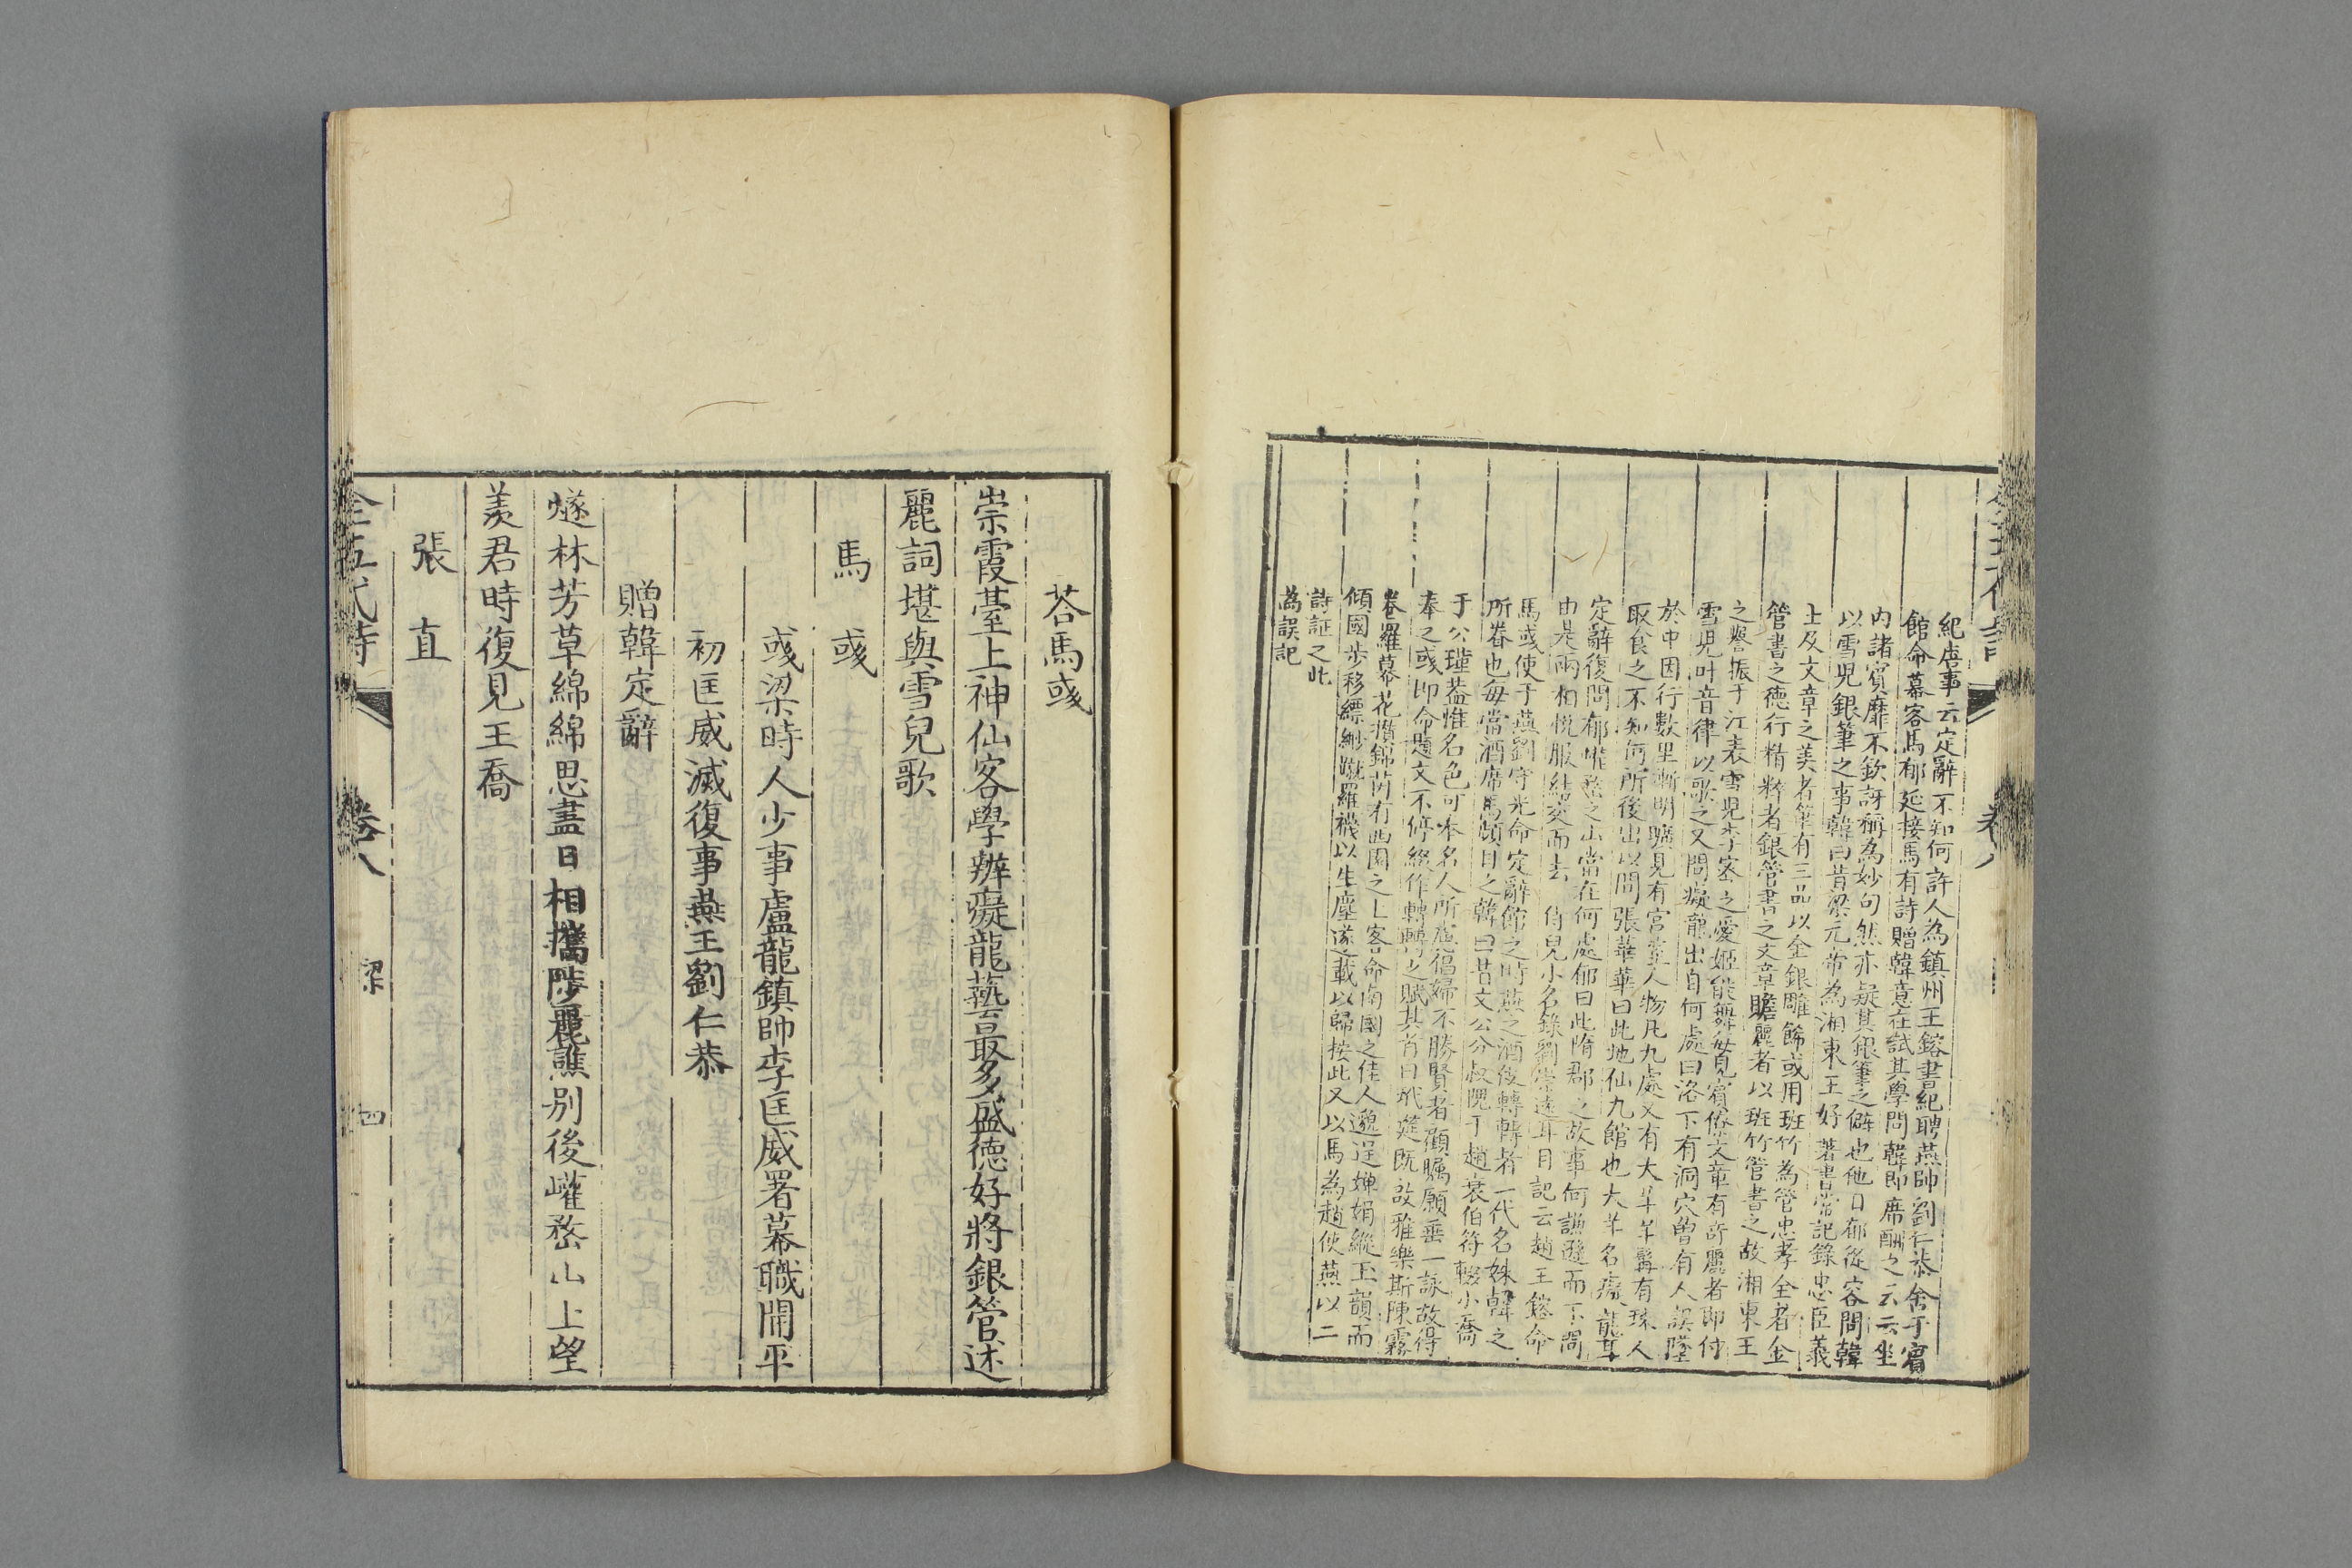 全五代詩 卷八
紀唐事云定辭不知何許人為鎮州王鎔書紀聘燕帥劉仁恭舍于賓
館命幕客馬郁延接馬有詩贈韓意在試其學問韓即席酬之云云坐
内諸賓靡不欽訝稱為妙句然亦疑其銀筆之僻也他日郁從容問韓
以雪児銀筆之事韓曰昔梁元帝為湘東王好著書常記錄忠臣義
士及文章之美者筆有三品以金銀雕飾或用斑竹為管忠孝全者金
管書之德行精粹者銀管書之文章贍麗者以斑竹管書之故湘東王
之譽振于江表雪児李密之愛姬能舞每見賓僚文章有奇麗者即付
雪児叶音律以歌之又問癡龍出自何處曰洛下有洞穴曽有人誤墜
於中因行數里漸明曠見有宮室人物凡九處又有大羊羊髯有珠人
取食之不知何所後出以問張華華曰此地仙九館也大羊名癡龍耳
定辭復問郁巏嵍之山當在何處郁曰此隋郡之故事何謙遜而下問
由是兩相悅服結交而去 侍兒小名錄劉崇遠耳目記云趙王鎔命
馬彧使于燕劉守光命定辭館之時燕之酒妓轉轉者一代名姝韓之
所眷也每當酒席馬頻目之韓曰昔文公分叔隗于趙衰伯符輟小喬
于公瑾蓋惟名色可奉名人所慮倡婦不勝賢者顧矚願垂一詠故得
奉之彧即命題文不停綴作轉轉之賦其首曰玳筵既啟雅樂斯陳霧
卷羅幕花攢錦茵有西園之上客命南國之佳人邈逞嬋娟縱玉韻而
傾國步移縹緲蹴羅襪以生塵遂載以歸按此又以馬為趙使燕以二
詩証之此
為誤記
荅馬彧
崇霞臺上神仙客學辨癡龍藝最多盛德好將銀管述
麗詞堪與雪兒歌
馬彧
彧梁時人少事盧龍鎮帥李匡威署幕職開平
初匡威滅復事燕王劉仁恭
贈韓定辭
燧林芳草綿綿思盡日相攜陟麗譙別後巏嵍山上望
羡君時復見王喬
張直
全五代詩 卷八 梁 四